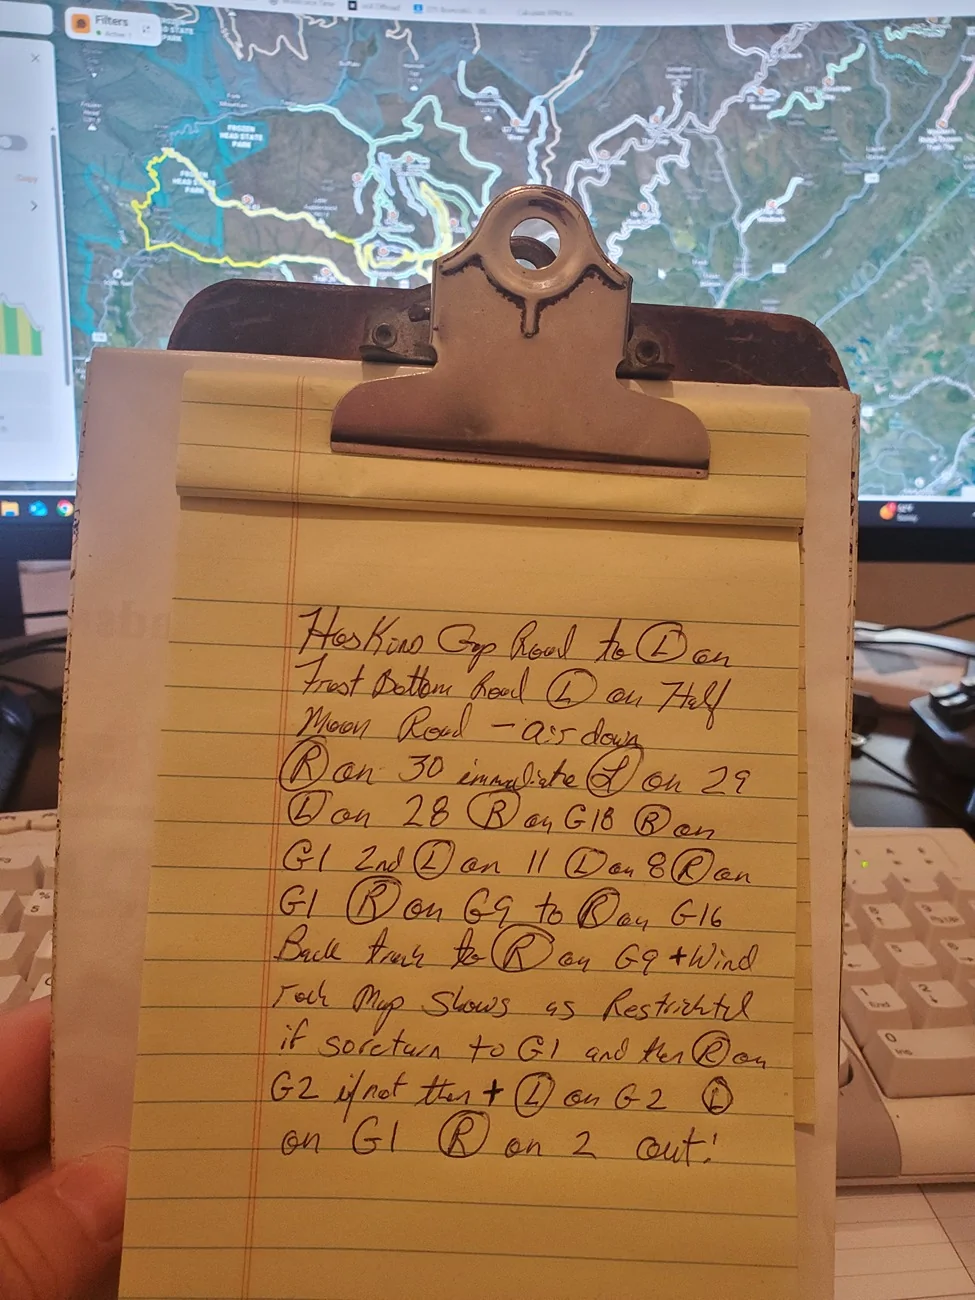 Filters
FROZEN
HEAD STATE
PARK
FROZEN
HEAD STATE
PARK
Copy
Hoskins Gap Road to Ⓛ on
Frost Bottom Road Ⓛ on Half
Moon Road - air down
Ⓡ on 30 immediate Ⓛ on 29
Ⓛ on 28 Ⓡ on G18 Ⓡ on
G1 2nd Ⓛ on 11 Ⓛ on 8 Ⓡ on
G1 Ⓡ on G9 to Ⓡ on G16
Back track to Ⓡ on G9 + Wind
rock Map shows as Restrichtd
if so return to G1 and then Ⓡ on
G2 if not then + Ⓛ on G2 Ⓛ
on G1 Ⓡ on 2 out!